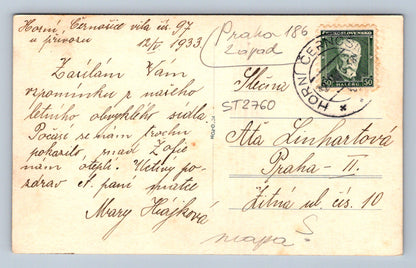 Horní Černošice vila čís. 97
u přívozu
12/V 1933.
Zasílám Vám
vzpomínku z našeho
letního obvyklého sídla.
Počasí se nám trochu
pokazilo, snad Žofie
nám oteplí. Uctivý po-
zdrav sl. paní matce
Mary Hájková
Praha 186
západ
Slečna
ST2760
Ata Linhartová
Praha - II.
Žitná ul. čís. 10
mapa Š.
HORNÍ ČERNOŠ
ČESKOSLOVENSKO
50 50